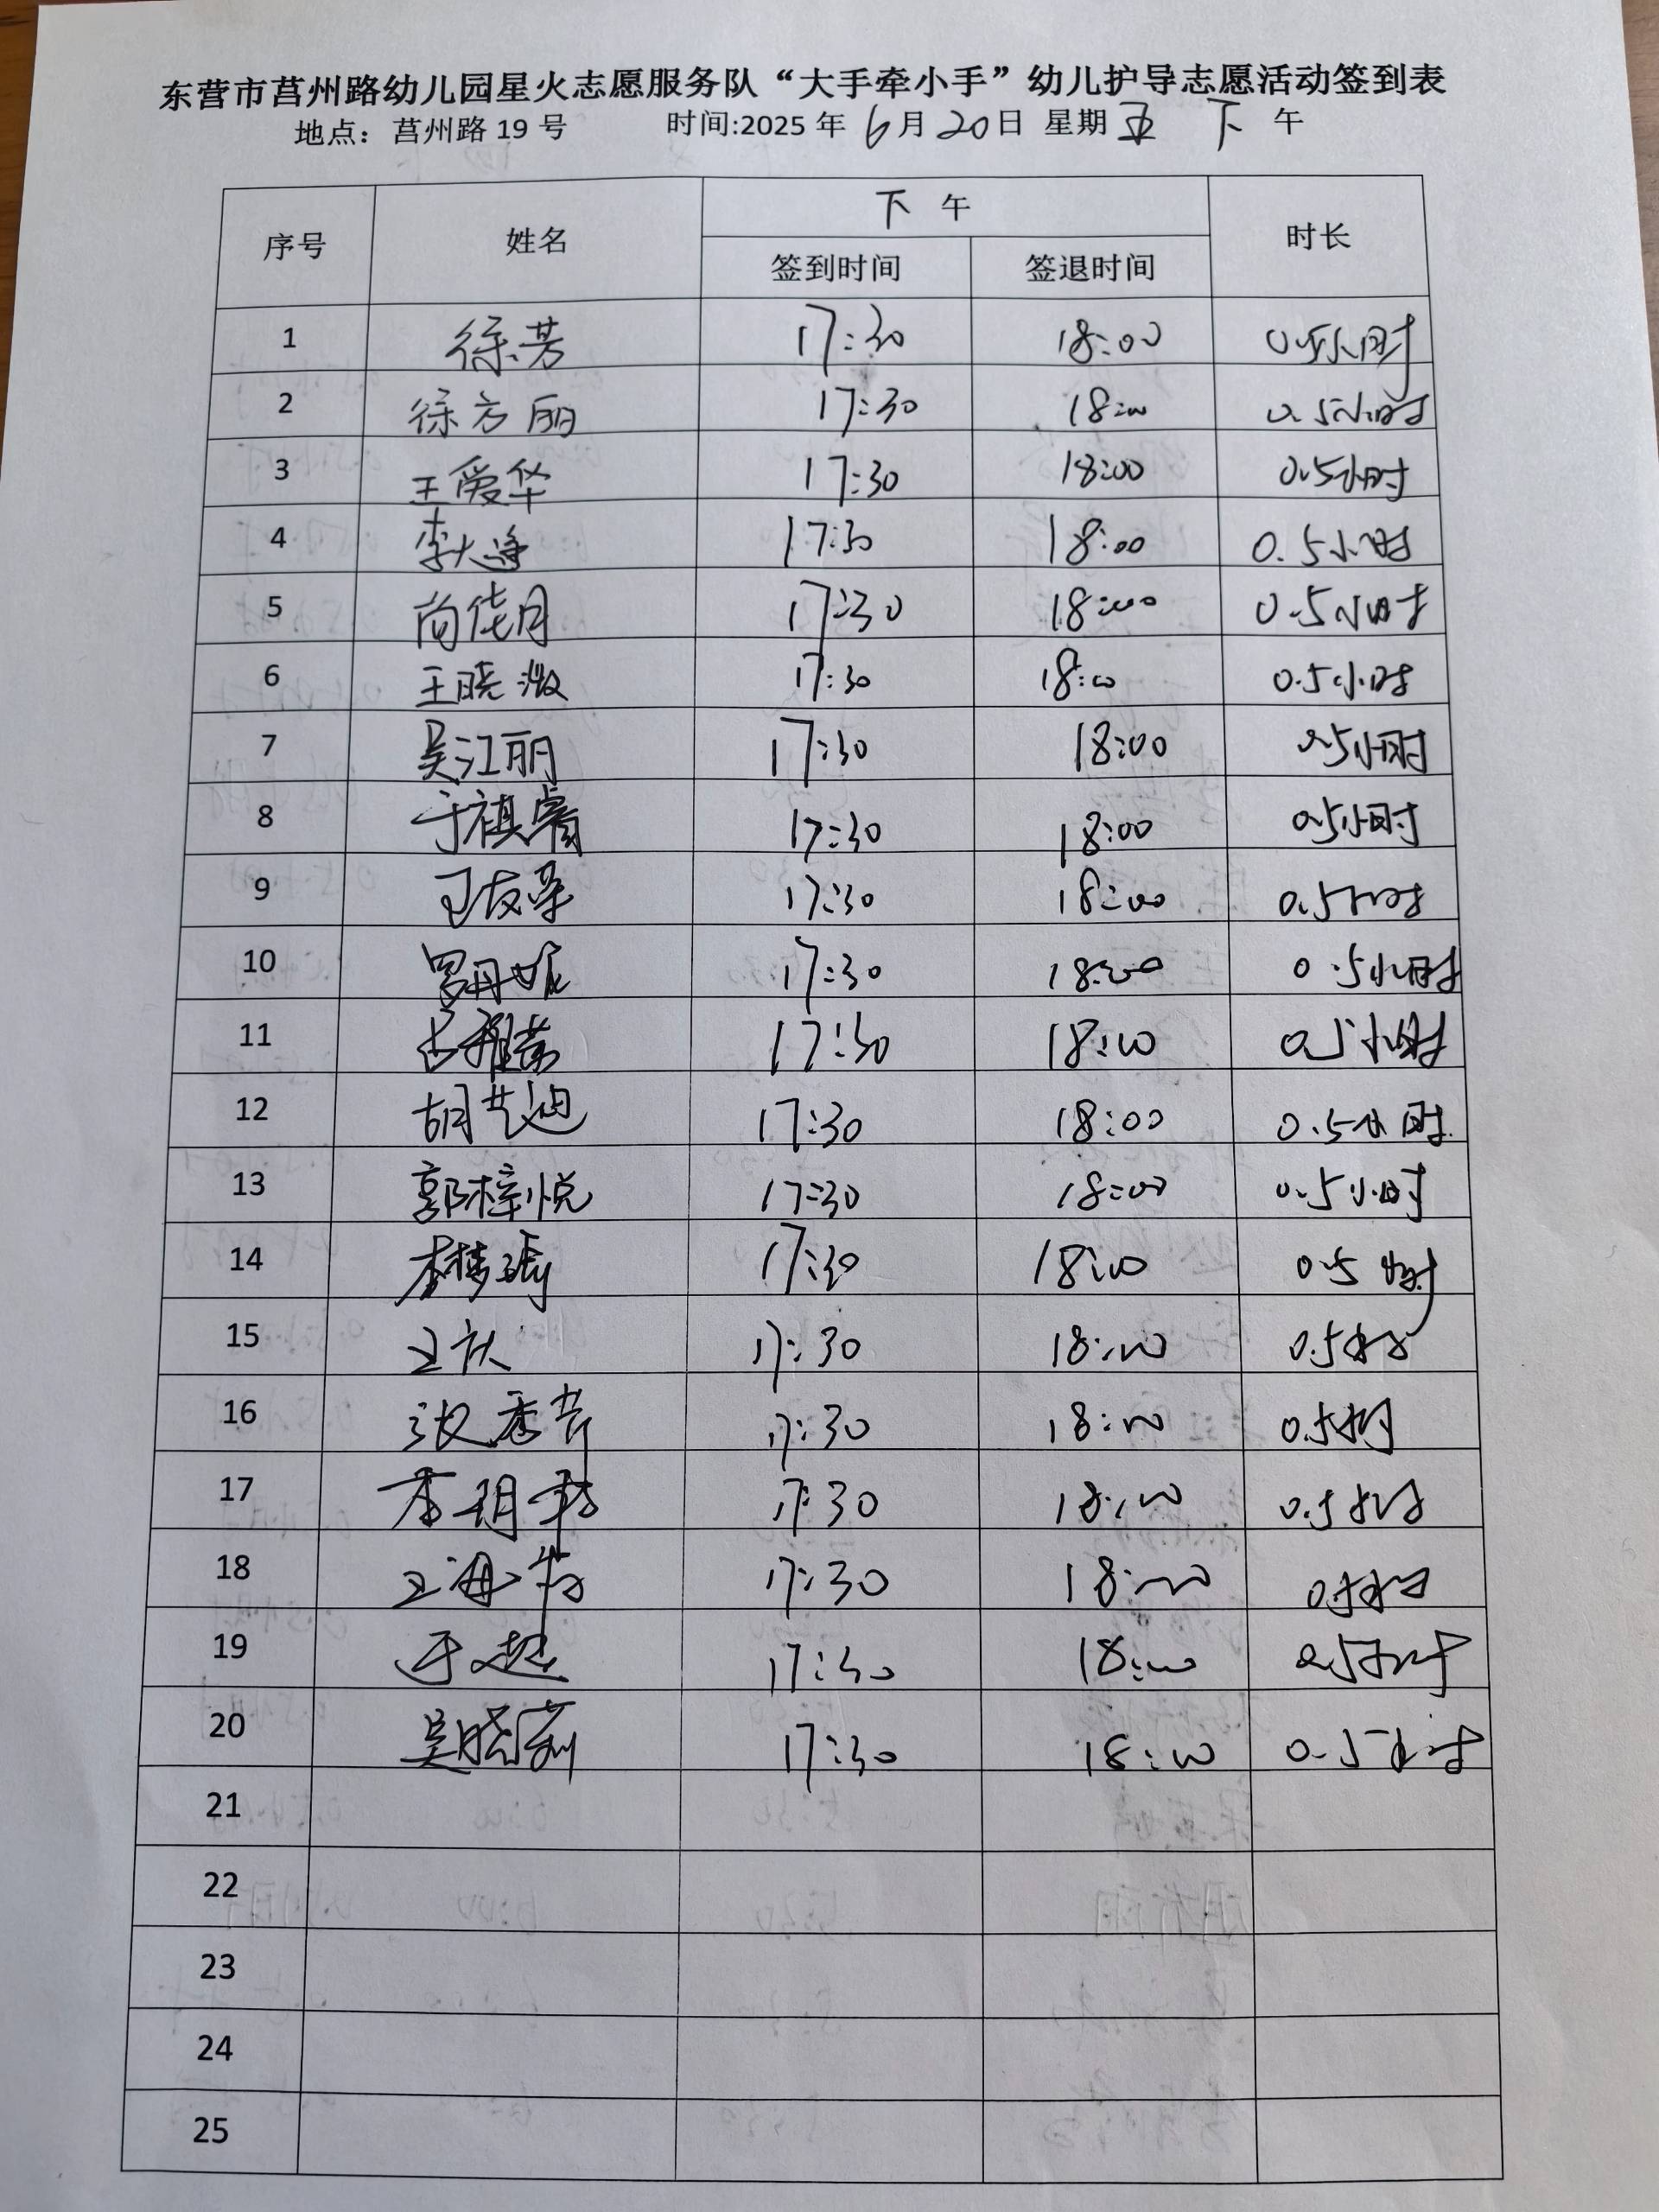 东营市莒州路幼儿园星火志愿服务队“大手牵小手”幼儿护导志愿活动签到表
地点：莒州路 19 号 时间:2025 年 6 月 20 日 星期 五 下 午
序号 姓名 下 午 时长
签到时间 签退时间
1 徐芳 17:30 18:00 0.5小时
2 徐方丽 17:30 18:00 0.5小时
3 王爱华 17:30 18:00 0.5小时
4 17:30 18:00 0.5小时
5 尚佳月 17:30 18:00 0.5小时
6 17:30 18:00 0.5小时
7 吴江丽 17:30 18:00 0.5小时
8 17:30 18:00 0.5小时
9 王友荣 17:30 18:00 0.5小时
10 罗丹妮 17:30 18:00 0.5小时
11 17:30 18:00 0.5小时
12 胡艺迪 17:30 18:00 0.5小时
13 郭梓悦 17:30 18:00 0.5小时
14 17:30 18:00 0.5小时
15 17:30 18:00 0.5小时
16 17:30 18:00 0.5小时
17 17:30 18:00 0.5小时
18 17:30 18:00 0.5小时
19 于超 17:30 18:00 0.5小时
20 吴晓莉 17:30 18:00 0.5小时
21
22
23
24
25